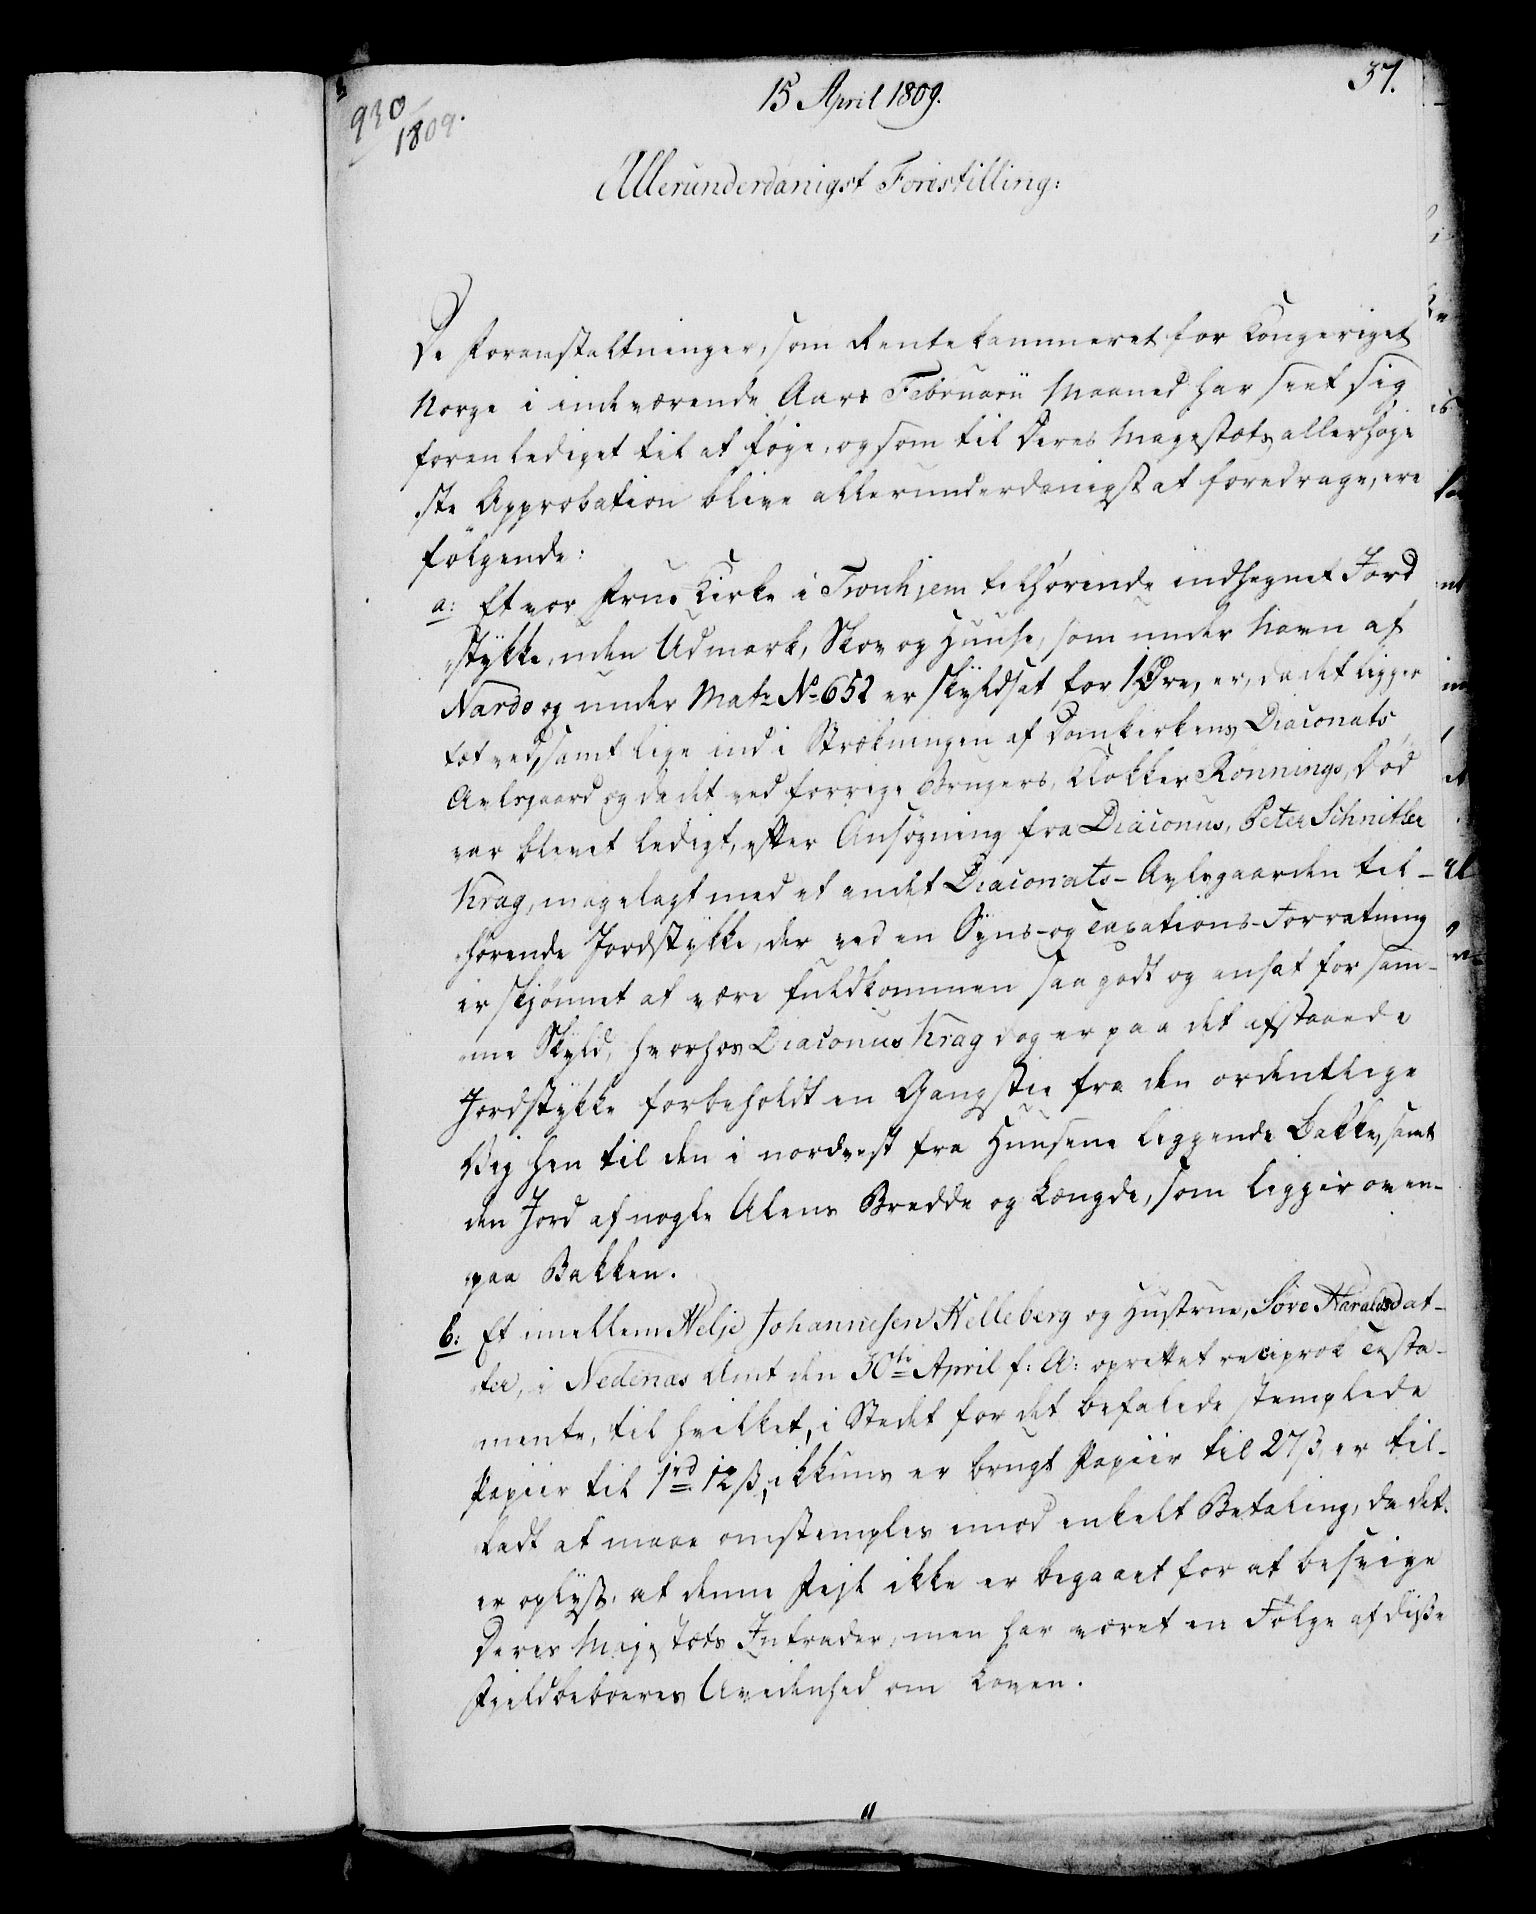 930/1809.
15 April 1809.
37.
Allerunderdanigst Forestilling:
De Foranstaltninger, som Rentekammeret for Kongeriget
Norge i indeværende Aars Februarii Maaned har seet sig
foranlediget til at føye, og som til Deres Majestæts allerhøye
ste Approbation blive allerunderdanigst at foredrage, ere
følgende:
a: Et vor Frue Kirke i Tronhjem tilhørende indhegnet Jord
stykke, uden Udmark, Skov og Huuse, som under Navn af
Nardo og under Matr No 652 er skyldsat for 1 Øre, er, da det ligger
tæt ved, samt lige ind i Strækningen af Domkirkens Diaconats
Avlsgaard og da det ved forrige Brugers, Klokker Rönnings, Död
var blevet ledigt, efter Ansøgning fra Diaconus, Peter Schnitler
Krag, magelagt med et andet Diaconats-Avlsgaarden til-
hørende Jordstykke, der ved en Syns- og Taxations-Forretning
er skjønnet at være fuldkommen saa godt og ansat for sam-
me Skyld, hvorhos Diaconus Krag dog er paa det afstaaede
Jordstykke forbeholdt en Gangstie fra den ordentlige
Vej hen til den i nordvest fra Huusene liggende Bakke, samt
den Jord af nogle Alens Bredde og Længde, som ligger oven-
paa Bakken.
b: Et imellem Helje Johannesen Helleberg og Hustrue, Siøre Haraldsdat-
ter, i Nedenæs Amt den 30te April f: A: oprettet reciprok Testa-
mente, til hvilket, i Stedet for det befalede stemplede
Papiir til 1 rd 12 ß, ikkuns er brugt Papiir til 27 ß, er til-
ladt at maae omstemples imod enkelt Betaling, da det
er oplyst, at denne Fejl ikke er begaaet for at besvige
Deres Majestæts Intrader, men har været en Følge af disse
Fjeldbeboeres Uvidenhed om Loven.